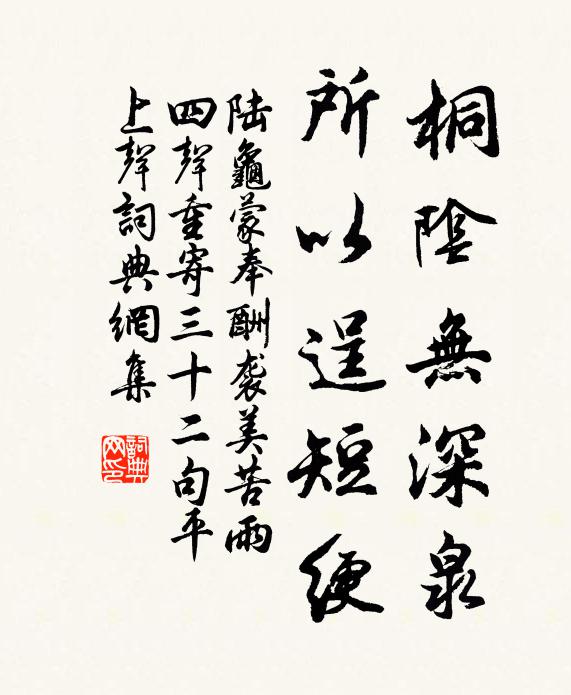 桐陰無深泉
所以逞短綆
陸龜蒙奉酬袭美苦雨
四聲重寄三十二句平
上聲詞典網集
詞典
网印